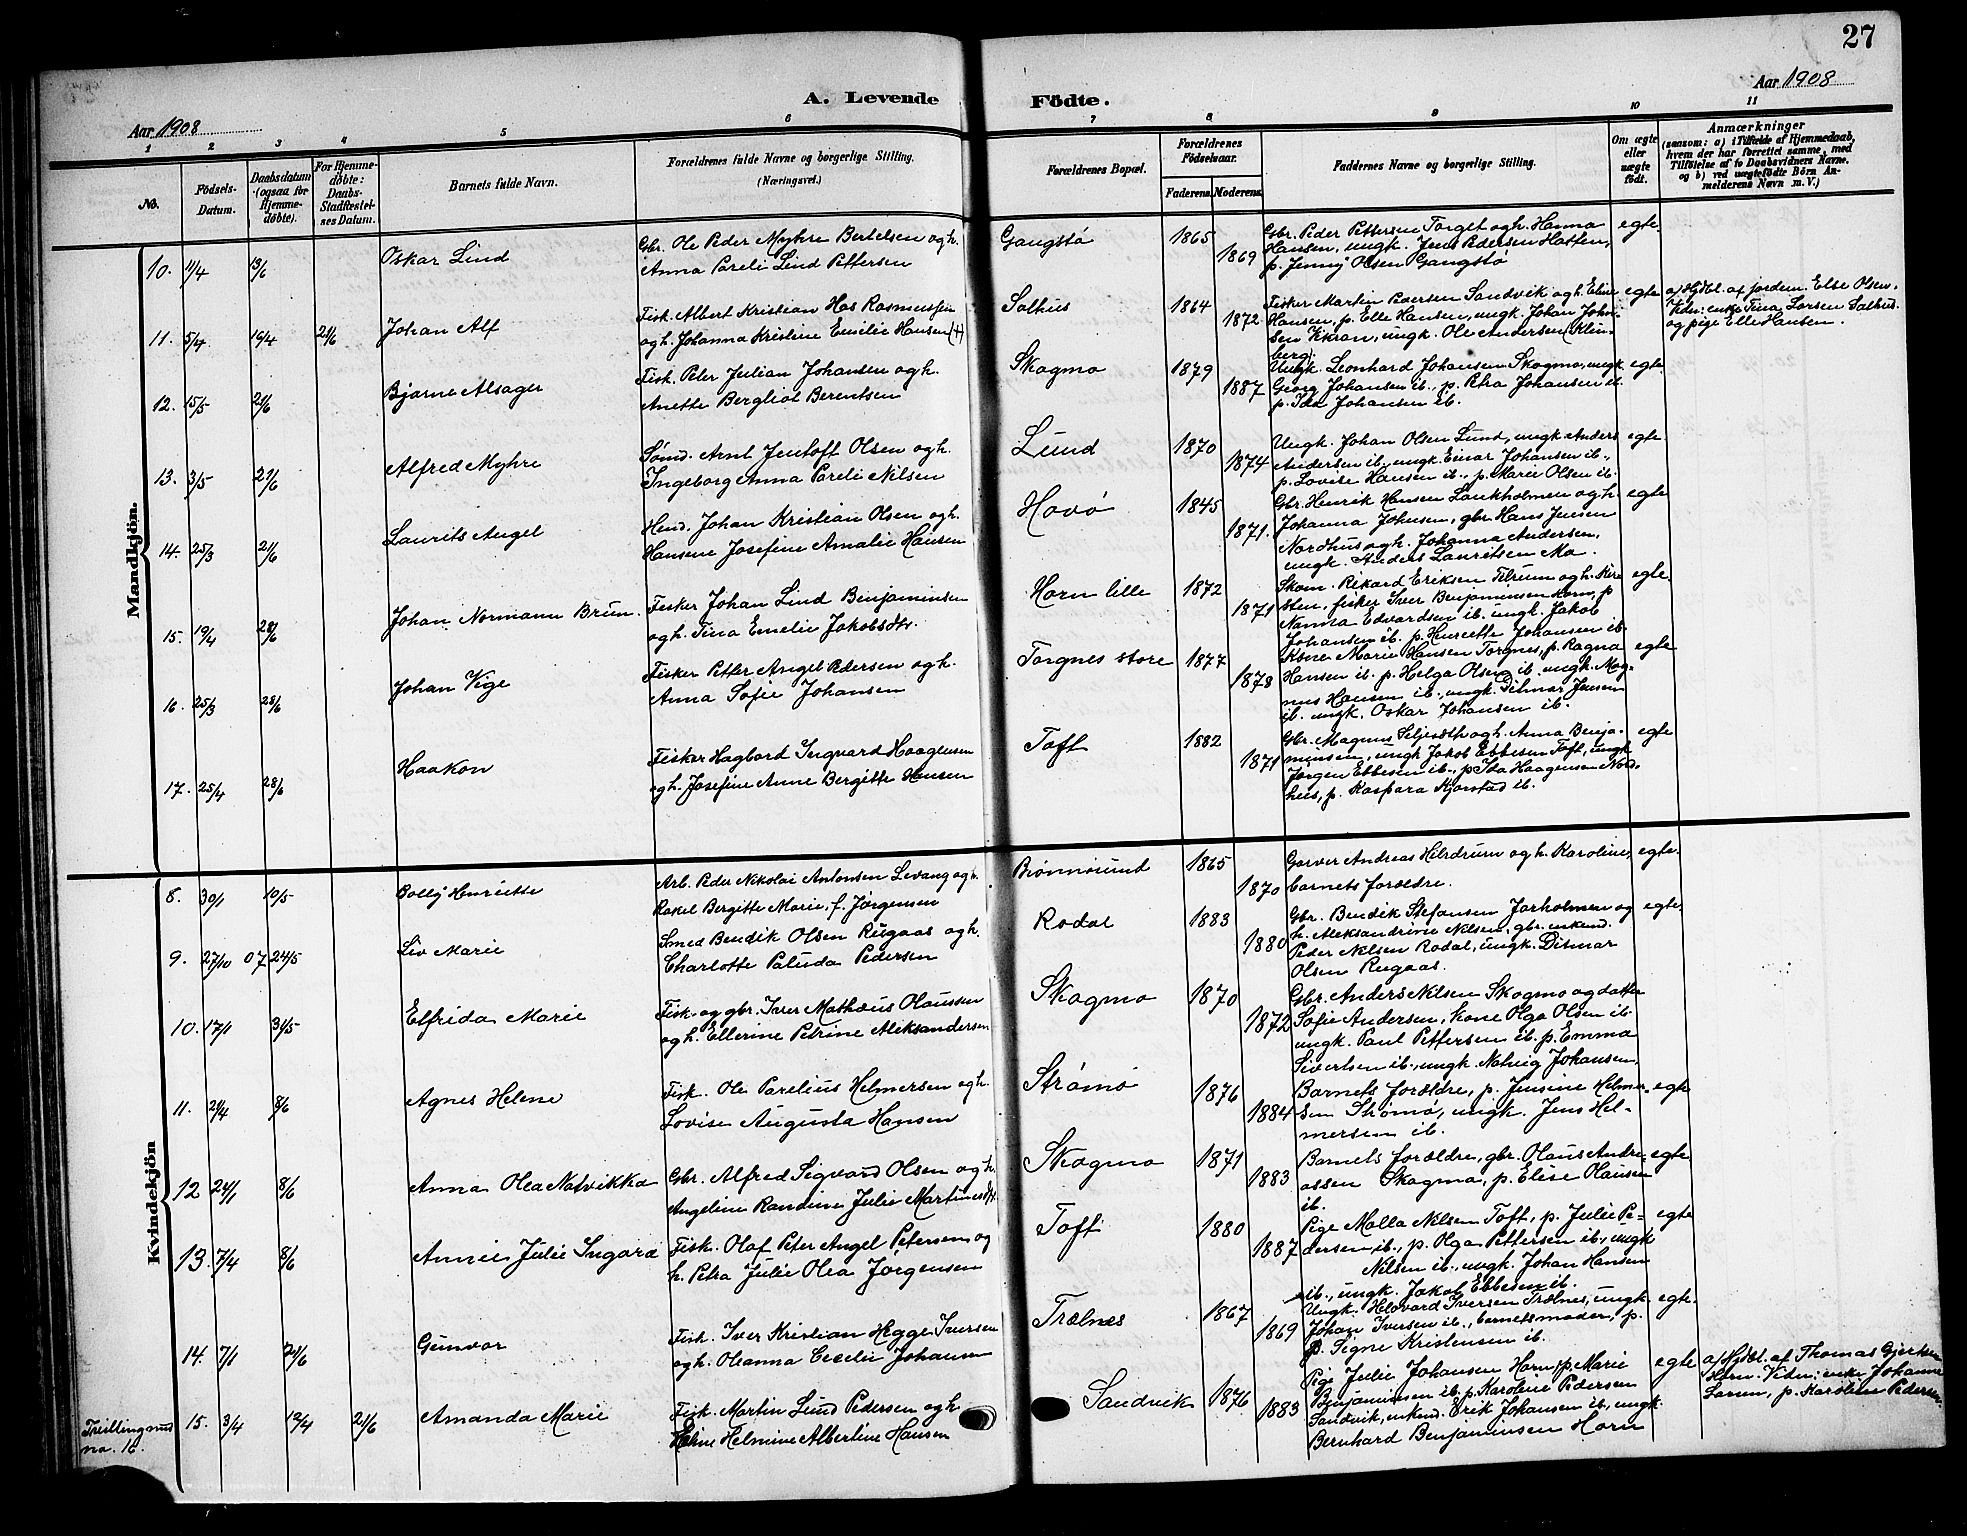 27
A. Levende Födte.
Aar 1908
Aar 1908
1 2 3 4 5 6 7 8 9 10 11
No.
Födsels-Datum.
Daabsdatum (ogsaa for Hjemmedöbte).
For Hjemmedöbte: Daabs-Stadfæstelsnes Datum.
Barnets fulde Navn.
Forældrenes fulde Navne og borgerlige Stilling.
(Næringsvei.)
Forældrenes Bopæl.
Forældrenes Födselsaar.
Faderens. Moderens.
Faddernes Navne og borgerlige Stilling.
Om ægte eller uægte födt.
Anmærkninger
(saasom: a) i Tilfælde af Hjemmedaab, hvem der har forrettet samme, med Tilföielse af to Daabsvidners Navne. og b) ved uægtefödte Börn Anmelderens Navn m. V.)
Mandkjön.
10. 11/4 13/6 Oskar Lind
Gbr. Ole Peder Myhre Bertelsen og h.
Anna Pareli Lind Pettersen
Gangstø 1865 1869
Gbr. Peder Pettersen Torget og h. Hanna
Hansen, ungk. Jens Pedersen Hatten,
p. Jenny Olsen Gangstø
egte
11. 5/4 19/4 21/6 Johan Alf
Fisk. Albert Kristian Hos Rasmussen
og h. Johanna Kristine Emilie Hansen (+)
Salhus 1864 1872
Fisker Martin Pedersen Sandvik og h. Eline
Hansen, p. Elle Hansen, ungk. Johan Johnsen
Vikran, ungk. Ole Andersen (Klinberg)
egte
a/ Hjdbt. af jordem. Else Olsen.
Vidn: enke Tina Larsen Salhus
og pige Elle Hansen.
12. 15/5 21/6 Bjarne Alsager
Fisk. Peter Julian Johansen og h.
Anette Bergliot Berentsen
Skogmo 1879 1887
Ungk. Leonhard Johansen Skogmo, ungk
Georg Johansen ib., p. Petra Johansen ib
p. Ida Johansen ib.
egte
13. 3/5 21/6 Alfred Myhre
Sømd. Arnt Jentoft Olsen og h.
Ingeborg Anna Pareli Nilsen
Lund 1870 1874
Ungk. Johan Olsen Lund, ungk Anders
Andersen ib., ungk. Einar Johansen ib.,
p. Lovise Hansen ib., p. Marie Olsen ib.
egte
14. 25/3 21/6 Laurits Angel
Hand. Johan Kristian Olsen og h.
Hansine Josefine Amalie Hansen
Havø 1845 1871.
Gbr. Henrik Hansen Lankholmen og h
Johanna Johnsen, gbr. Hans Jensen
Nordhus og h. Johanna Andersen,
ungk. Anders Lauritsen Mo.
egte
15. 19/4 28/6 Johan Normann Brun
Fisker Johan Lind Benjaminsen
og h. Tina Emelie Jakobsdtr.
Horn lille 1872 1871
Skom. Rikard Eriksen Tilrum og h. Kirsten,
fisker Iver Benjaminsen Horn, p
Nanna Edvardsen ib. ungk. Jakob
Johansen ib. p. Henrette Johansen ib.
egte
16. 25/3 28/6 Johan Vige
Fisker Petter Angel Pedersen og h.
Anna Sofie Johansen
Torgnes store 1877 1878
Kone Marie Hansen Torgnes, p. Ragna
Hansen ib. p. Helga Olsen ib. ungk. Magnus
Hansen ib., ungk. Ditmar Jensen
ib. ungk. Oskar Johansen ib.
egte
17. 25/4 28/6 Haakon
Fisker Hagbard Ingvard Haagensen
og h. Josefine Anne Bergitte Hansen
Toft 1882 1871
Gbr. Magnus Seljesdth og h. Anna Benjaminsen,
ungk Jakob Ebbesen Toft, ungk
Jørgen Ebbesen ib., p Ida Haagensen Nordhus,
p. Kaspara Kjørstad ib.
egte
Kvindekjön
8. 30/1 10/5 Bolly Henriette
Arb. Peder Nikolai Antonsen Levang og h.
Rakel Bergitte Marie, f. Jørgensen
Brønnøsund 1865 1870
Garver Andreas Hildrum og h. Karoline,
barnets forældre.
egte
9. 27/10 07 24/5 Liv Marie
Smed Bendik Olsen Rugaas og h.
Charlotte Paluda Pedersen
Rodal 1883 1880
Gbr. Bendik Stefansen Jarholmen og
h. Aleksandrine Nilsen, gbr. enkem.
Peder Nilsen Rodal, ungk. Ditmar
Olsen Rugaas.
egte
10. 17/1 31/5 Elfrida Marie
Fisk. og gbr. Iver Mathæus Olaussen
og h. Ellerine Petrine Aleksandersen
Skogmo 1870 1872
Gbr. Anders Nilsen Skogmo og datter
Sofie Andersen, kone Olga Olsen ib
ungk. Paul Pettersen ib. p. Emma
Sivertsen ib., ungk Natvig Johansen.
11. 21/4 8/6 Agnes Helene
Fisk. Ole Parelius Helmersen og h.
Lovise Augusta Hansen
Strømø 1876 1884
Barnets forældre, p. Jensine Helmersen
Strømø, ungk. Jens Helmersen
ib.
egte
12 24/1 8/6 Anna Olea Natvikka
Gbr. Alfred Sigvard Olsen og h.
Angeline Randine Julie Martinesdtr.
Skogmo 1871 1883
Barnets forældre, gbr. Olaus Andreassen
Skogmo, p. Elise Olausen
ib.
egte
13. 7/4 8/6 Annie Julie Ingara
Fisk. Olaf Peter Angel Petersen og
h. Petra Julie Olea Jørgensen
Toft 1880 1887
Pige Molla Nilsen Toft, p. Julie Pedersen,
ib., p. Olga Pettersen ib., ungk
Nilsen ib., ungk. Johan Hansen
ib., ungk. Jakob Ebbesen ib.
egte
14. 7/1 21/6 Gunvor
Fisk. Iver Kristian Hegge Iversen
og h. Oleanna Cecelie Johansen
Trælnes 1867 1869
Ungk. Halvard Iversen Trælnes, ungk.
Johan Iversen ib., barnets moder, p.
p. Signe Kristensen ib.
egte
Trillingmed no. 16.
15. 3/4 19/4 21/6 Amanda Marie
Fisk. Martin Lund Pedersen og h.
Eline Helmine Albertine Hansen
Sandvik 1876 1883
Pige Julie Johansen Horn, p. Marie
Benjaminsen ib. p. Karoline Pedersen
Sandvik, enkem. Erik Johansen ib., ungk.
Bernhard Benjaminsen Horn
egte
a/ Hjdbt. af Thomas Gjertsen
Horn. Vidn: enke Johanne
Larsen, p. Karoline Pedersen